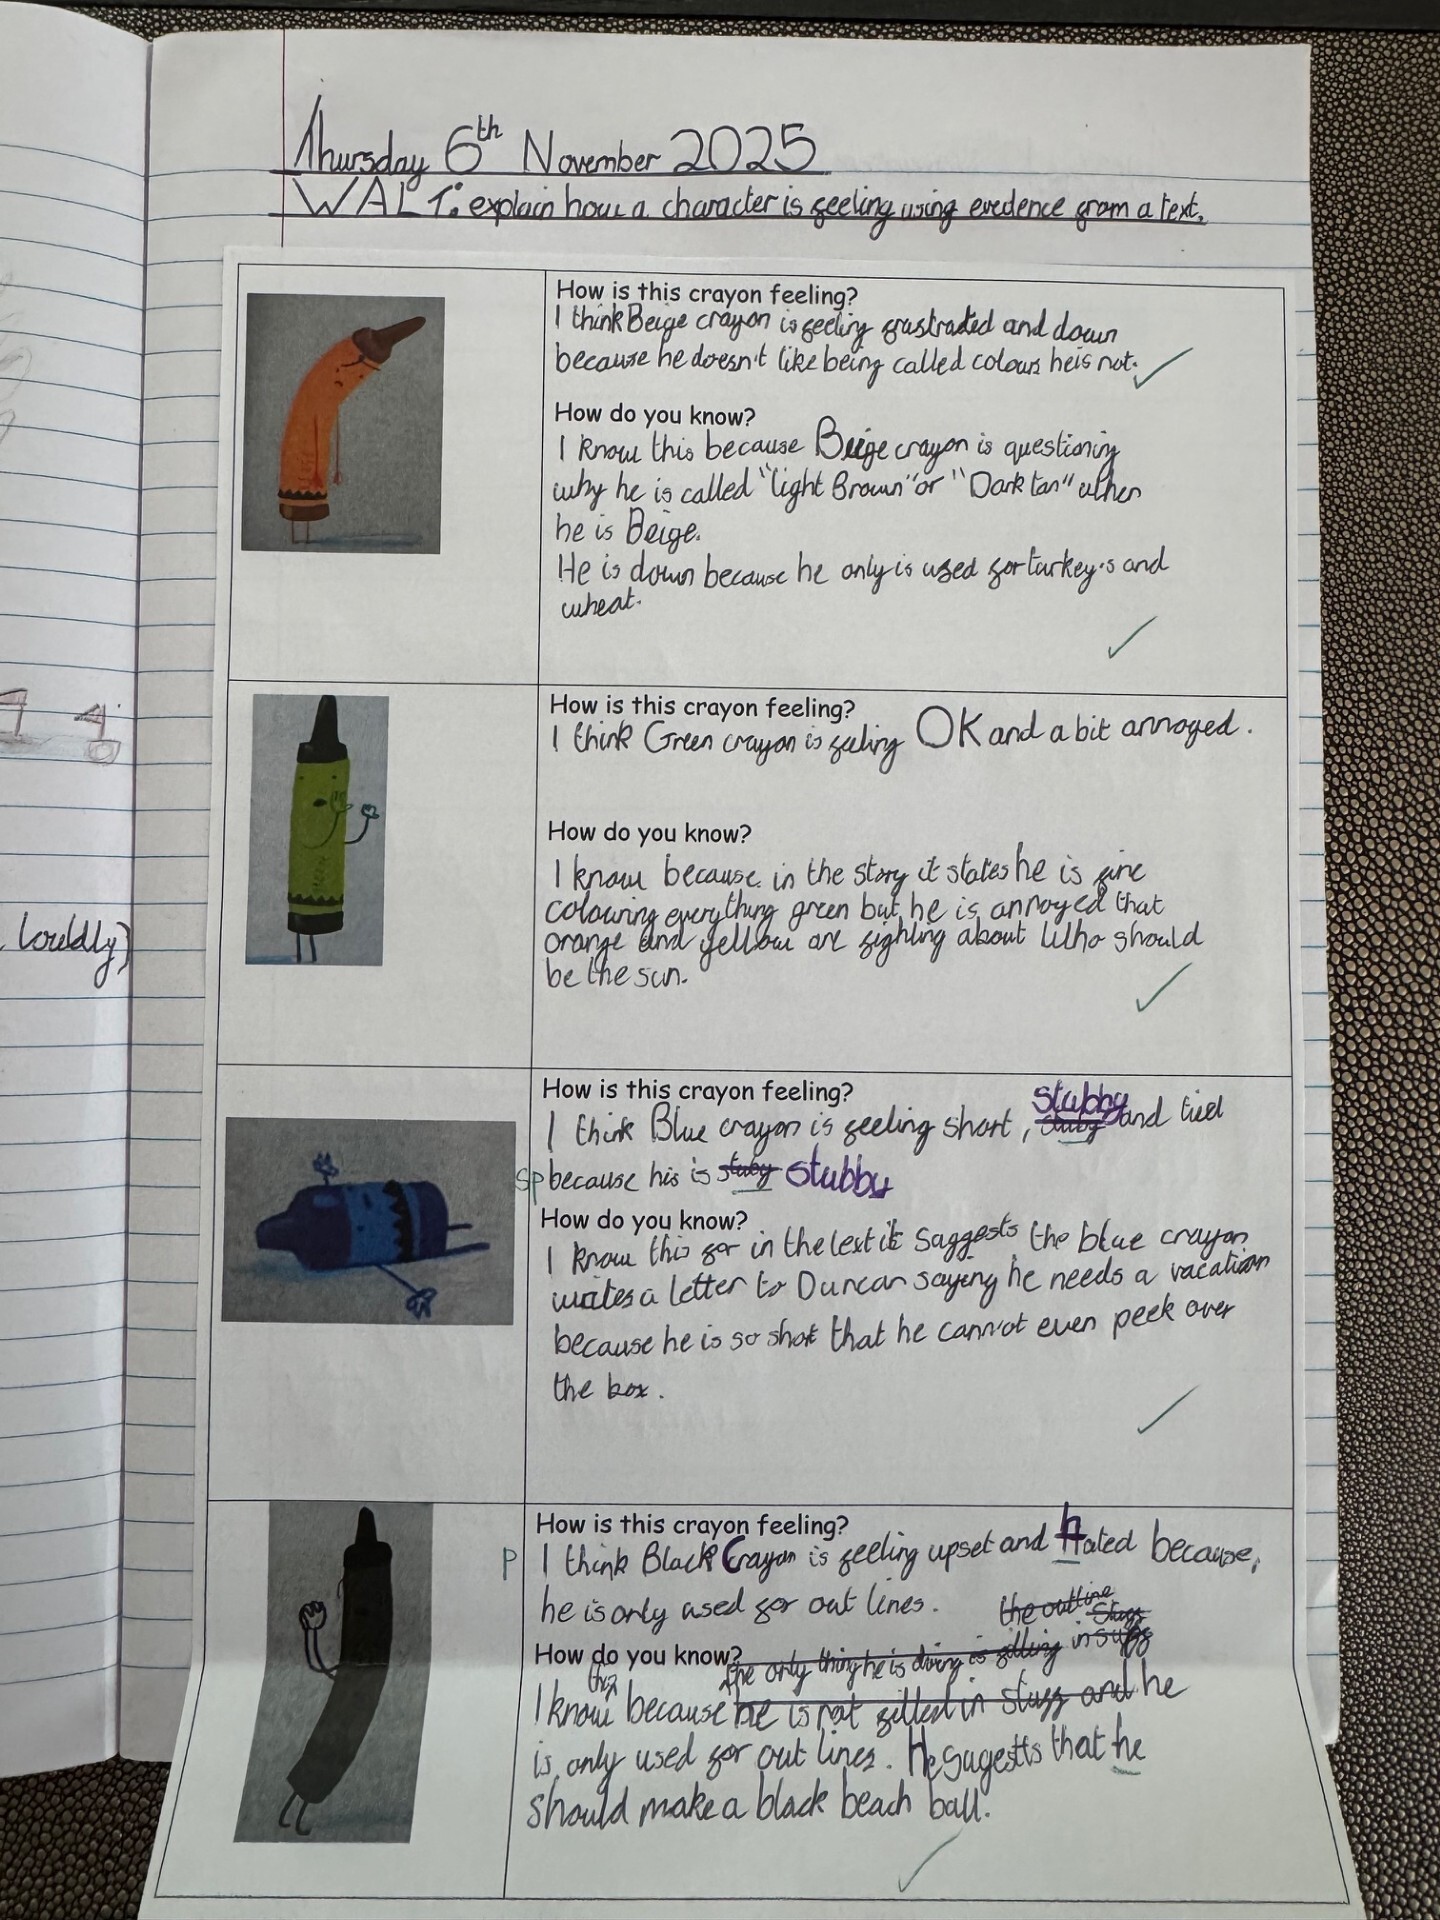 Thursday 6th November 2025
WALT: explain how a character is feeling using evedence from a text.
How is this crayon feeling?
I think Beige crayon is feeling frustraded and down
because he doesn't like being called colours he is not.
How do you know?
I know this because Beige crayon is questioning
why he is called "light Brown" or "Dark tan" when
he is Beige.
He is down because he only is used for turkey's and
wheat.
How is this crayon feeling?
I think Green crayon is feeling OK and a bit annoyed.
How do you know?
I know because in the story it states he is fine
colouring everything green but he is annoyed that
orange and yellow are fighting about who should
be the sun.
louldly)
How is this crayon feeling?
I think Blue crayon is feeling short, stubby stuby and tied
sp because his is stuby stubby
How do you know?
I know this for in the text it suggests the blue crayon
writes a letter to Duncan saying he needs a vacation
because he is so short that he cannot even peek over
the box.
How is this crayon feeling?
P I think Black Crayon is feeling upset and hated because,
he is only used for out lines.
the outline
stuff
How do you know? the only thing he is doing is filling in
this
I know because he is not filled in stuff and he
is only used for out lines. He sugestts that he
should make a black beach ball.